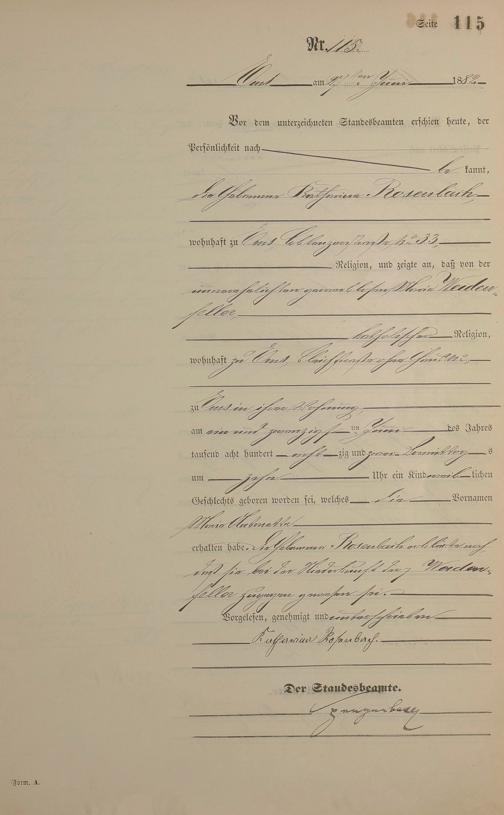 Seite 115
Nr. 115.
Ems am Juni 1882
Vor dem unterzeichneten Standesbeamten erschien heute, der
Persönlichkeit nach
be kannt,
die Hebamme Katharina Rosenbach
wohnhaft zu Ems, Coblenzerstraße No 33,
Religion, und zeigte an, daß von der
unverehelichten gewerblosen Maria Weiden-
feller
katholischer Religion,
wohnhaft zu Ems
zu Ems in ihrer Wohnung
am ein und zwanzigsten Juni des Jahres
tausend acht hundert acht zig und zwei Vormittags
um zehn Uhr ein Kind weib lichen
Geschlechts geboren worden sei, welches die Vornamen
Maria
erhalten habe. Die Hebamme Rosenbach erklärte noch
daß sie bei der Niederkunft der Weiden-
feller zugegen gewesen sei.
Vorgelesen, genehmigt und unterschrieben
Katharina Rosenbach.
Der Standesbeamte.
Form. A.